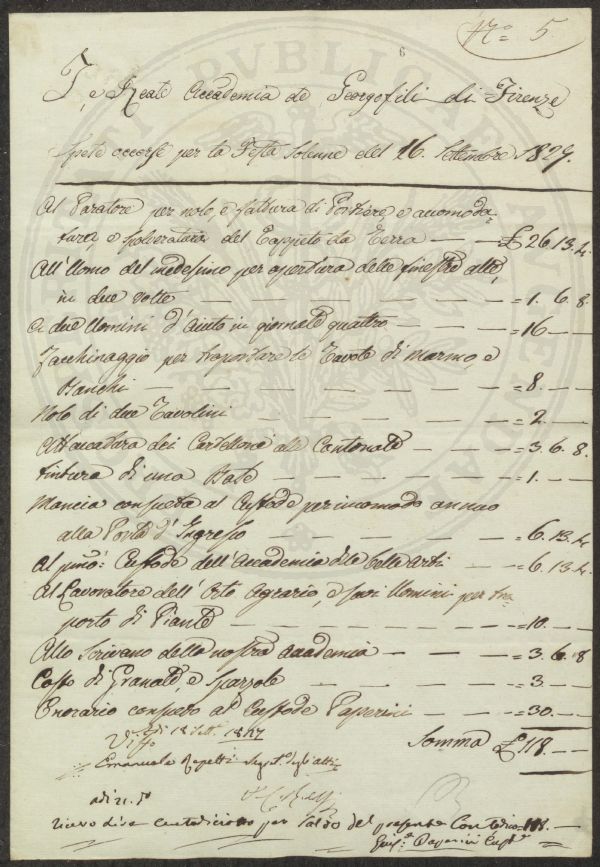 N.o 5.
6
I. e Reale Accademia de Georgofili di Firenze
Spese occorse per la Festa Solenne del 16. Settembre 1827.
Al Paratore per nolo, e fattura di Portiere, e accomoda=
tura, e spolveratura del Tappeto da Terra — — £ 26.13.4.
All'Uomo del medesimo per apertura delle finestre alte,
in due volte — — — — — — = 1. 6. 8.
A due Uomini d'aiuto in giornate quattro — — — = 16 — —
Facchinaggio per trasportare le Tavole di marmo, e
Banchi — — — — — — = 8. — —
Nolo di due Tavolini — — — — — = 2. — —
Attaccatura dei Cartelloni alle Cantonate — — — = 3. 6. 8.
Tintura di una Base — — — — — = 1. — —
Mancia consueta al Custode per incomodo annuo
alla Porta d'Ingresso — — — — = 6. 13. 4.
Al Custode dell'Accademia delle belle Arti — = 6. 13. 4.
Al Lavoratore dell'Orto Agrario, e suoi Uomini per tra=
porto di Piante — — — — — = 10. — —
Allo Scrivano della nostra Accademia — — — = 3. 6. 8
Costo di Granate, e Spazzole — — — — = 3. — —
Onorario consueto al Custode Paperini — — — = 30. — —
Somma £ 118. — —
18 Sett. 1827
Emanuele Repetti Segret. degli atti
adi 21. do
per saldo del presente Conto = 118. —
Paperini Custe.